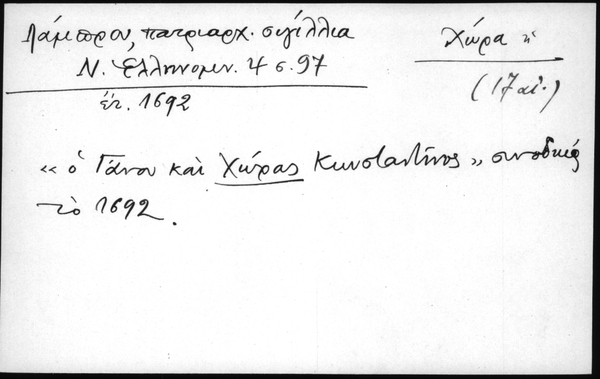 Λάμπρου, πατριαρχ. σιγίλλια
Ν. Ἑλληνομν. 4 σ. 97
ἐτ. 1692
Χώρα ἡ
(17 αἰ.)
«ὁ Γάνου καὶ Χώρας Κωνσταντῖνος», συνοδικῶς
τὸ 1692.